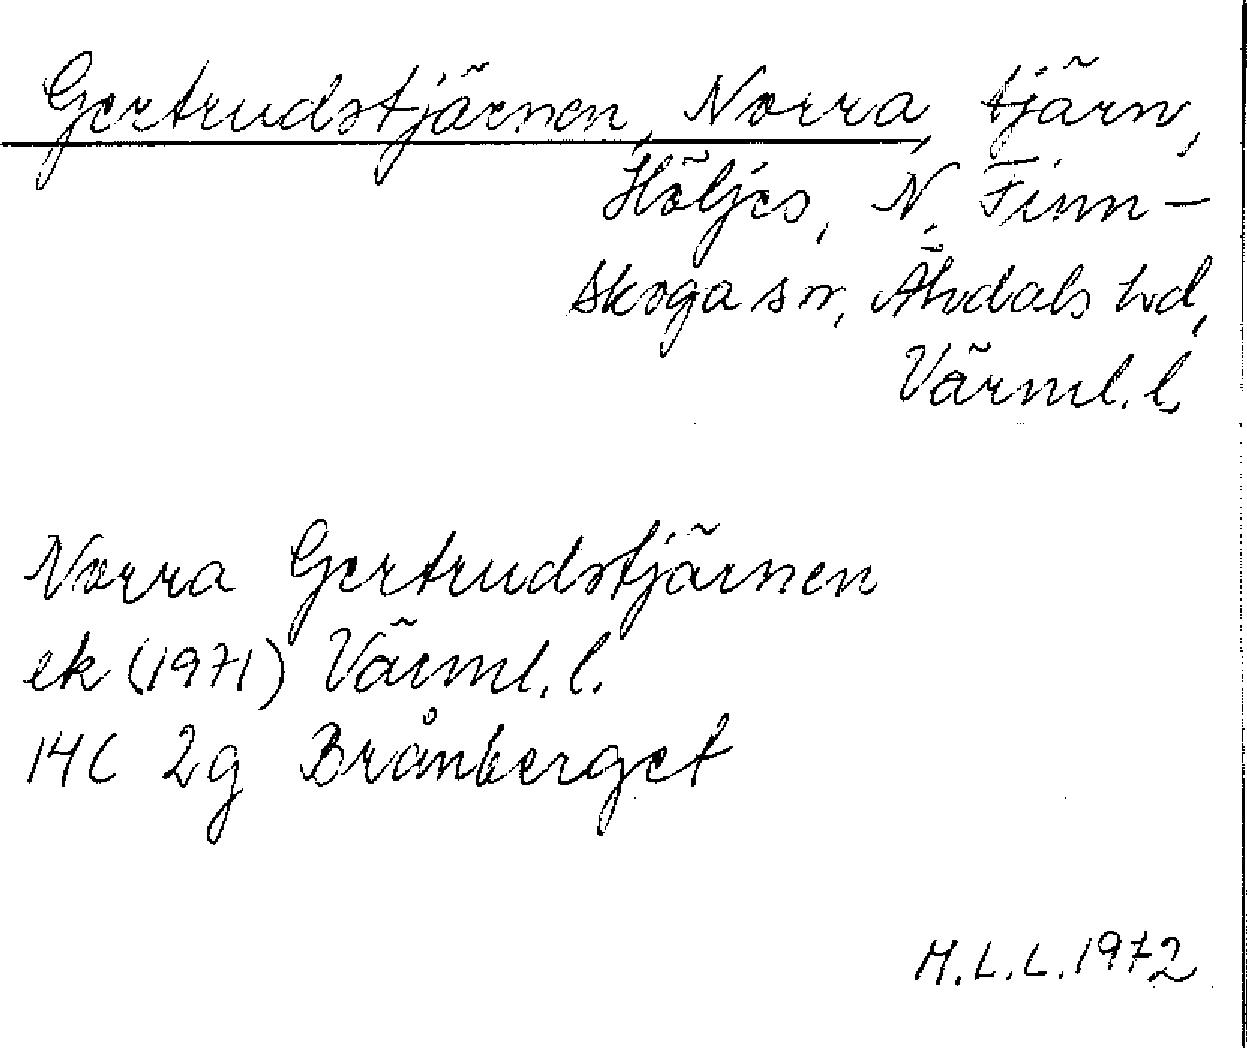 Gertrudstjärnen, Norra, tjärn,
Höljes, N. Finn-
skoga sn, Älvdals hd,
Värml. l.
Norra Gertrudstjärnen
ek (1971) Värml. l.
14C 2g Brånberget
M.L.L. 1972